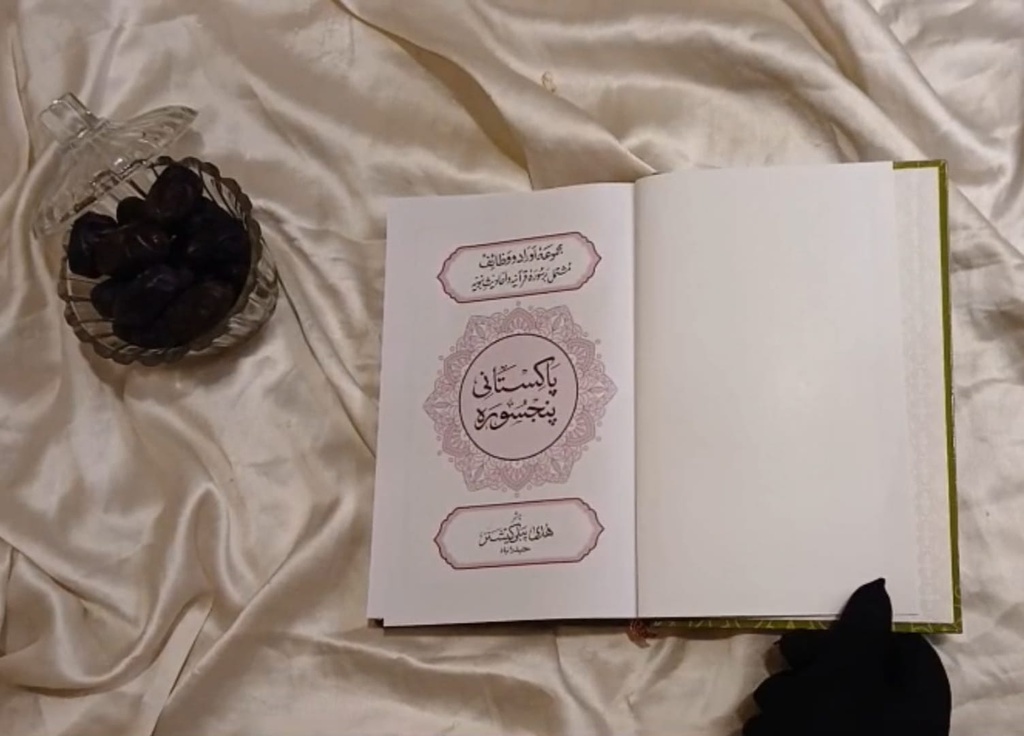 مجموعۂ اوراد و وظائف
مشتمل بر سُورۂ قرآنیہ و احادیثِ نبویہ
پاکستانی
پنجسُورہ
ناشر
ھدیٰ پبلی کیشنز
حیدرآباد